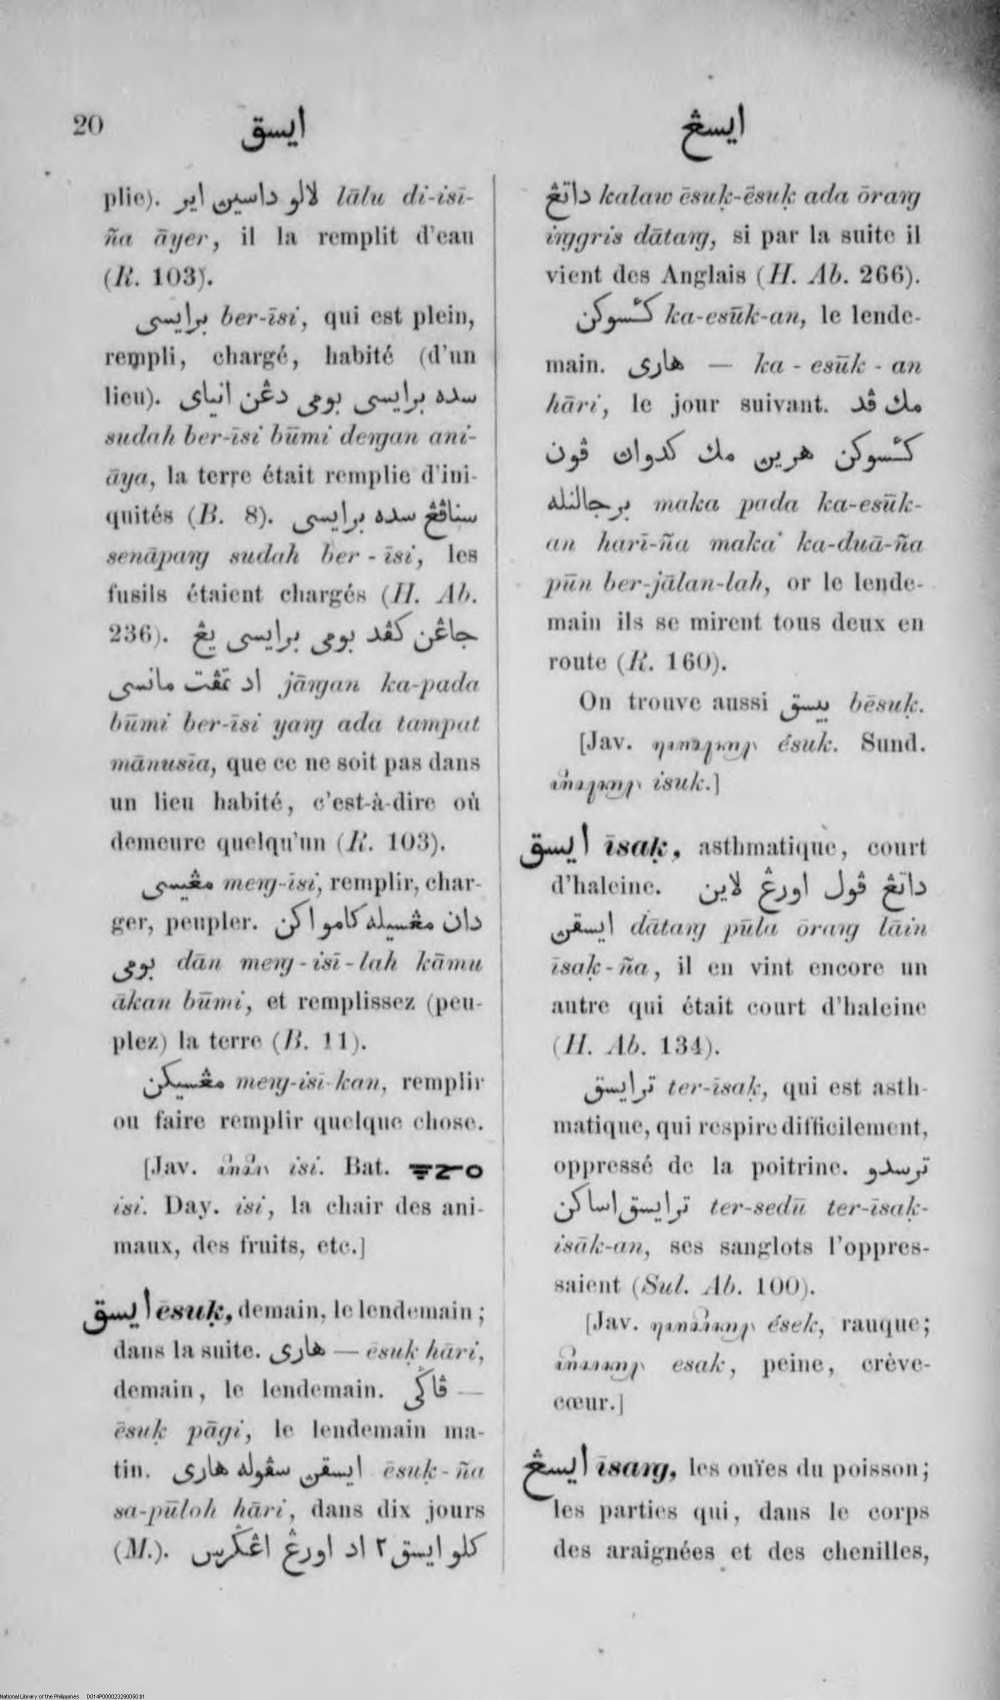 20
ايسق
ايسڠ
plie). لالو داسين اير lālu di-isī-
ña āyer, il la remplit d'eau
(R. 103).
برايسى ber-īsi, qui est plein,
rempli, chargé, habité (d'un
lieu). سده برايسى بومى دڠن انياى
sudah ber-īsi būmi deŋgan ani-
āya, la terre était remplie d'ini-
quités (B. 8). سناڤڠ سده برايسى
senāpaŋ sudah ber-īsi, les
fusils étaient chargés (H. Ab.
236). جاڠن كڤد بومى برايسى يڠ
اد تمڤت مانسى jāŋgan ka-pada
būmi ber-īsi yaŋ ada tampat
mānusīa, que ce ne soit pas dans
un lieu habité, c'est-à-dire où
demeure quelqu'un (R. 103).
مڠيسى meŋ-īsi, remplir, char-
ger, peupler. دان مڠسيله كامو اكن
بومى dān meŋ-isī-lah kāmu
ākan būmi, et remplissez (peu-
plez) la terre (B. 11).
مڠسيكن meŋ-isī-kan, remplir
ou faire remplir quelque chose.
[Jav. isi. Bat.
isi. Day. isi, la chair des ani-
maux, des fruits, etc.]
ايسق ēsuḳ, demain, le lendemain;
dans la suite. هارى — ēsuḳ hāri,
demain, le lendemain. ڤاڬى —
ēsuḳ pāgi, le lendemain ma-
tin. ايسقن سڤوله هارى ēsuḳ-ña
sa-pūloh hāri, dans dix jours
(M.). كلو ايسق٢ اد اورڠ اڠڬريس
داتڠ kalaw ēsuḳ-ēsuḳ ada ōraŋ
iŋggris dātaŋ, si par la suite il
vient des Anglais (H. Ab. 266).
كئسوكن ka-esūk-an, le lende-
main. هارى — ka-esūk-an
hāri, le jour suivant. مك ڤد
كئسوكن هرين مك كدوان ڤون
برجالنله maka pada ka-esūk-
an harī-ña maka ka-duā-ña
pūn ber-jālan-lah, or le lende-
main ils se mirent tous deux en
route (R. 160).
On trouve aussi بيسق bēsuḳ.
[Jav. ésuk. Sund.
isuk.]
ايسق īsaḳ, asthmatique, court
d'haleine. داتڠ ڤول اورڠ لاين
ايسقن dātaŋ pūla ōraŋ lāin
īsaḳ-ña, il en vint encore un
autre qui était court d'haleine
(H. Ab. 134).
ترايسق ter-īsaḳ, qui est asth-
matique, qui respire difficilement,
oppressé de la poitrine. ترسدو
ترايسق اساكن ter-sedū ter-īsaḳ-
isāk-an, ses sanglots l'oppres-
saient (Sul. Ab. 100).
[Jav. ések, rauque;
esak, peine, crève-
cœur.]
ايسڠ īsaŋ, les ouïes du poisson;
les parties qui, dans le corps
des araignées et des chenilles,
National Library of the Philippines